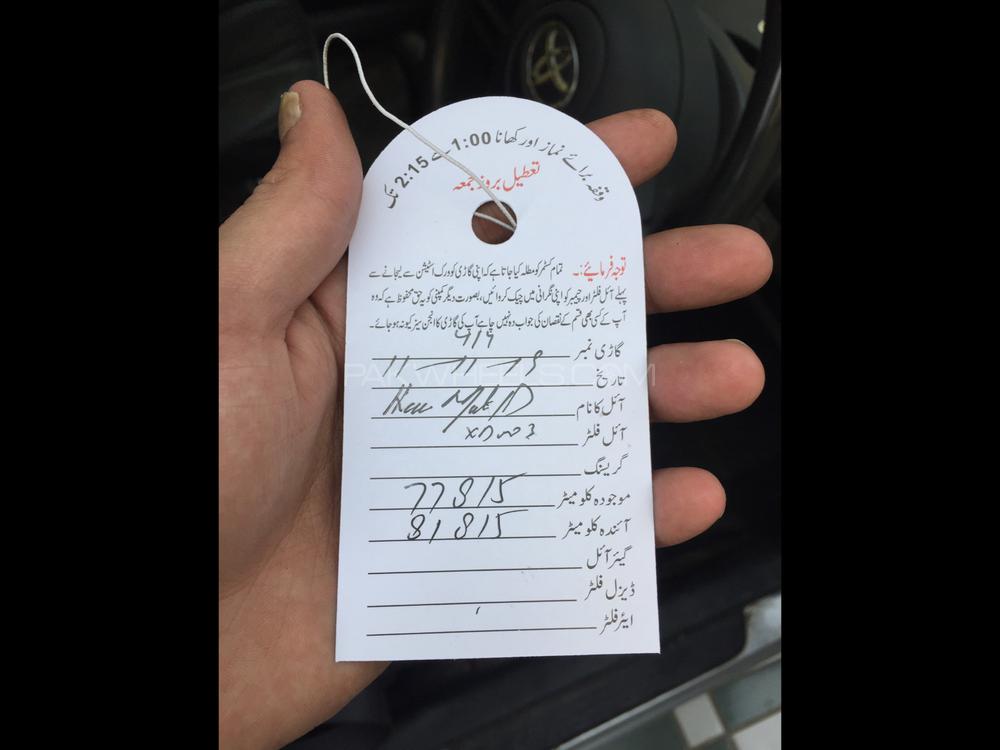 وقفہ برائے نماز اور کھانا 1:00 سے 2:15 تک
تعطیل بروز جمعہ
توجہ فرمائیے:۔ تمام کسٹمر کو مطلہ کیا جاتا ہے کہ اپنی گاڑی کو ورک اسٹیشن سے لیجانے سے
پہلے آئل فلٹر اور چیمبر کو اپنی نگرانی میں چیک کروائیں، بصورت دیگر کمپنی کو یہ حق محفوظ ہے کہ وہ
آپ کے کسی بھی قسم کے نقصان کی جواب دہ نہیں چاہے آپ کی گاڑی کا انجن سیز کیو نہ ہو جائے۔
گاڑی نمبر 419
تاریخ 11-11-18
آئل کا نام
آئل فلٹر
گریسنگ
موجودہ کلومیٹر 77815
آئندہ کلومیٹر 81815
گیئر آئل
ڈیزل فلٹر
ایئر فلٹر
PAKWHEELS.COM